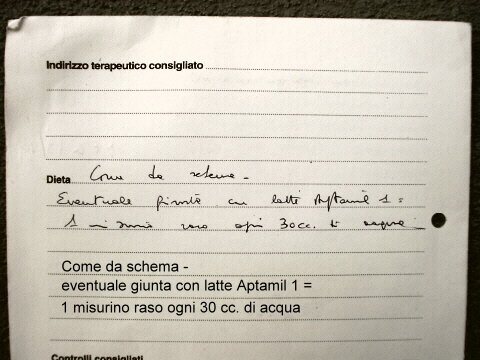 Indirizzo terapeutico consigliato
Dieta Come da schema -
Eventuale giunta con latte Aptamil 1 =
1 misurino raso ogni 30 cc. di acqua
Come da schema -
eventuale giunta con latte Aptamil 1 =
1 misurino raso ogni 30 cc. di acqua
Controlli consigliati